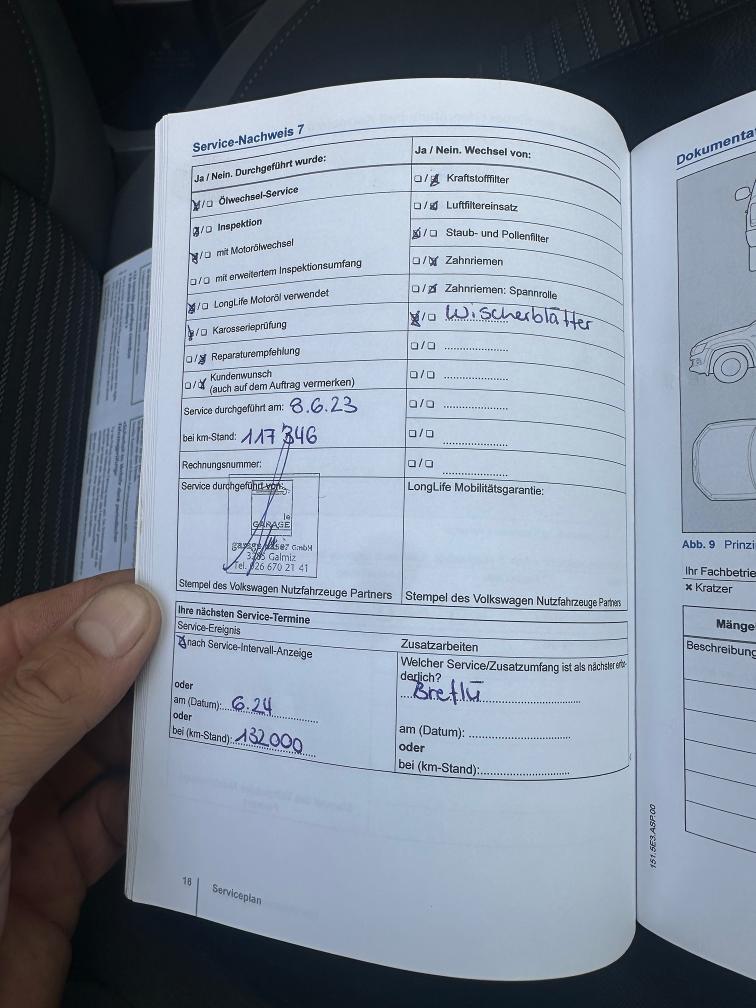 Service-Nachweis 7
Ja / Nein. Durchgeführt wurde:
Ölwechsel-Service
Inspektion
mit Motorölwechsel
mit erweitertem Inspektionsumfang
LongLife Motoröl verwendet
Karosserieprüfung
Reparaturempfehlung
Kundenwunsch
(auch auf dem Auftrag vermerken)
Service durchgeführt am: 8.6.23
bei km-Stand: 117 346
Rechnungsnummer:
Service durchgeführt von:
GARAGE
GmbH
3285 Galmiz
Tel. 026 670 21 41
Stempel des Volkswagen Nutzfahrzeuge Partners
Ja / Nein. Wechsel von:
Kraftstofffilter
Luftfiltereinsatz
Staub- und Pollenfilter
Zahnriemen
Zahnriemen: Spannrolle
Wischerblätter
LongLife Mobilitätsgarantie:
Stempel des Volkswagen Nutzfahrzeuge Partners
Ihre nächsten Service-Termine
Service-Ereignis
nach Service-Intervall-Anzeige
oder
am (Datum): 6.24
oder
bei (km-Stand): 132000
Zusatzarbeiten
Welcher Service/Zusatzumfang ist als nächster erfor-
derlich?
Breflü
am (Datum):
oder
bei (km-Stand):
16
Serviceplan
151.5E3.ASP.00
Abb. 9
Ihr Fachbetrie
× Kratzer
Mänge
Beschreibung